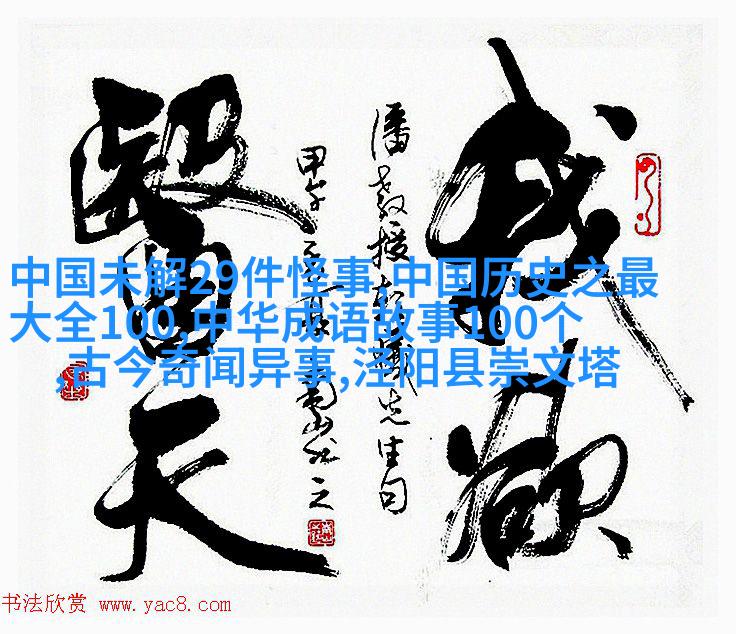 我欲
潘教授先生句
甲午
醫天
中国未解29件怪事,中国历史之最
大全100,中华成语故事100个
,古今奇闻异事,泾阳县崇文塔
书法欣赏 www.yac8.com